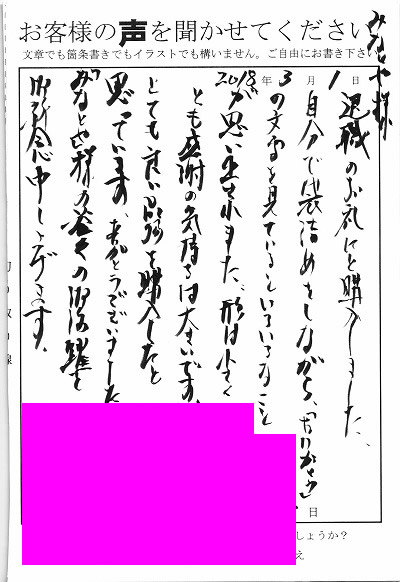 お客様の声を聞かせてください
文章でも箇条書きでもイラストでも構いません。ご自由にお書き下さい
みなとや様
2018年3月1日
退職のお礼にと購入しました、
自分で袋詰めをしながら、「ありがとう」
の文字を見ているといろいろなこと
が思い出されました、形は小さく
とも感謝の気持ちは大きいです。
とても良い品物を購入したと
思っています。ありがとうございました
みなとや様の益々の御活躍を
御祈念申し上げます。
日
しょうか?
え
切り取り線